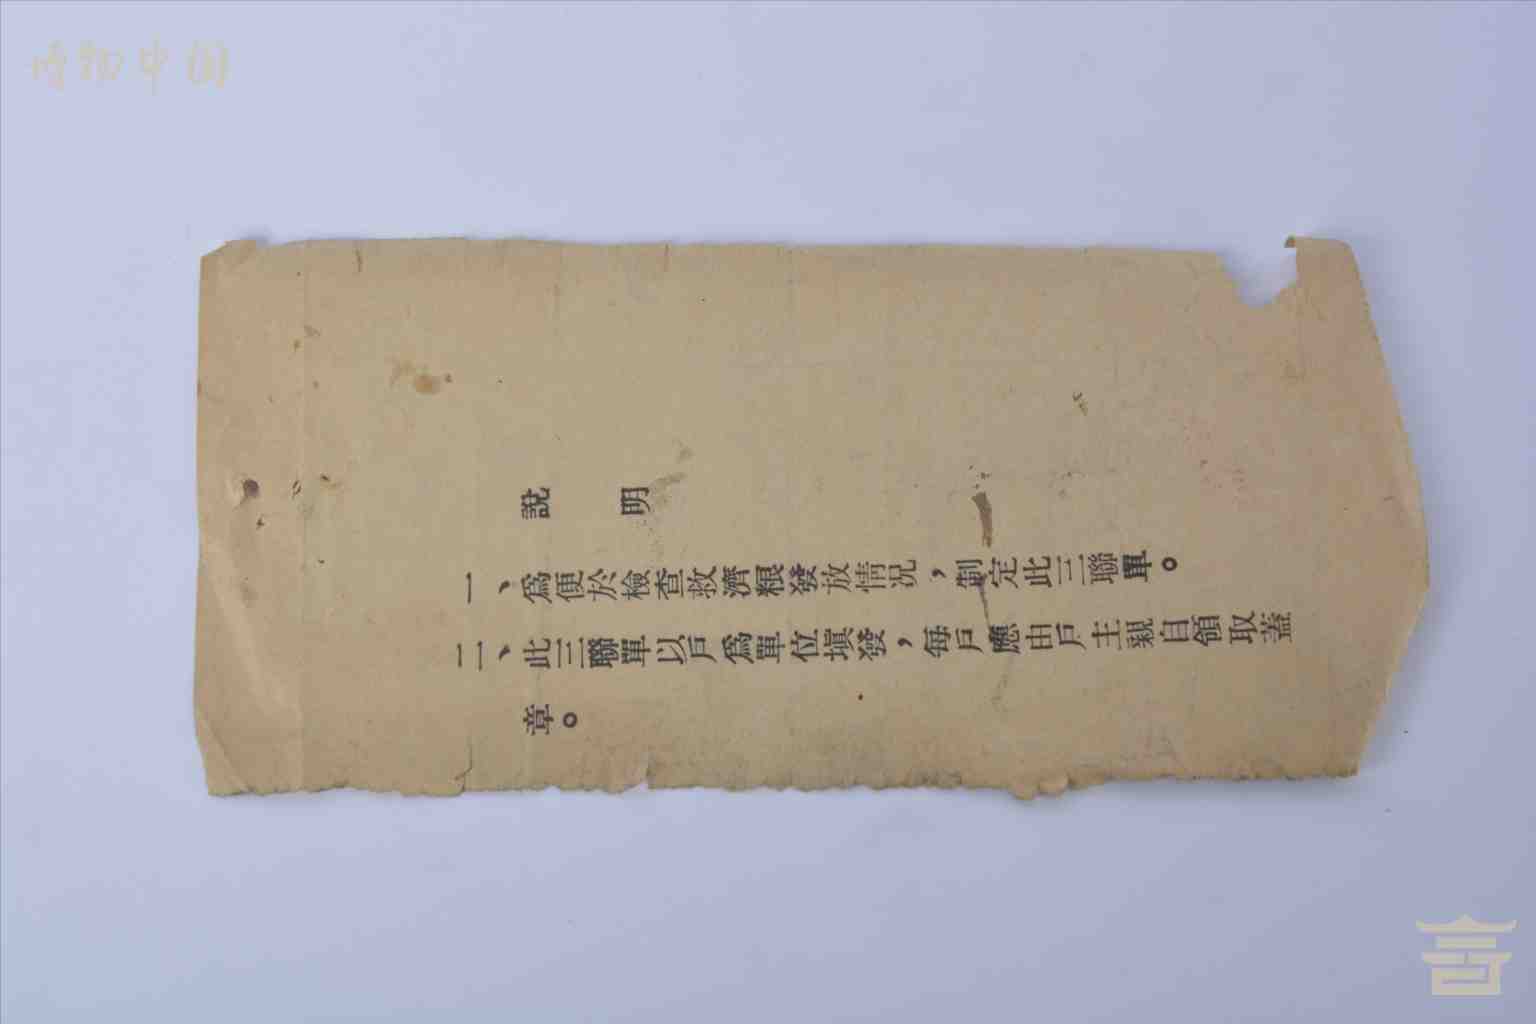 博物中国
說明
一、爲便於檢查救濟粮發放情況，制定此三聯單。
二、此三聯單以戶爲單位塡發，每戶應由戶主親自領取蓋
章。